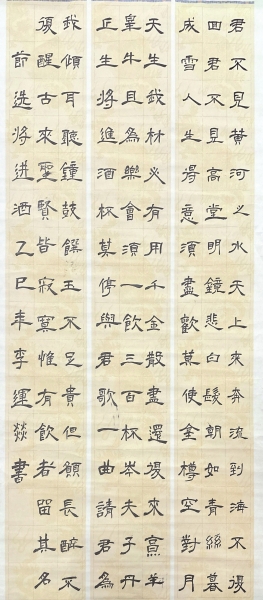 君不見黃河之水天上來奔流到海不復
回君不見高堂明鏡悲白髮朝如青絲暮
成雪人生得意須盡歡莫使金樽空對月
天生我材必有用千金散盡還復來烹羊
宰牛且為樂會須一飲三百杯岑夫子丹
丘生將進酒杯莫停與君歌一曲請君為
我傾耳聽鐘鼓饌玉不足貴但願長醉不
復醒古來聖賢皆寂寞惟有飲者留其名
節選將進酒乙巳年李運燚書